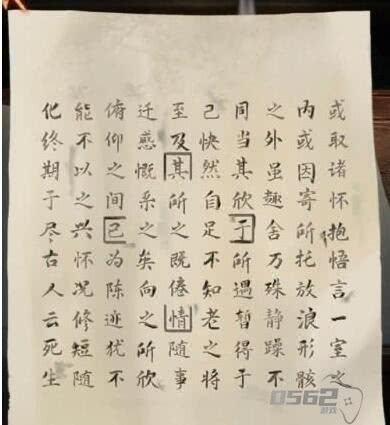 或取诸怀抱悟言一室之
内或因寄所托放浪形骸
之外虽趣舍万殊静躁不
同当其欣于所遇暂得于
己快然自足不知老之将
至及其所之既倦情随事
迁感慨系之矣向之所欣
俯仰之间已为陈迹犹不
能不以之兴怀况修短随
化终期于尽古人云死生
0562
游戏